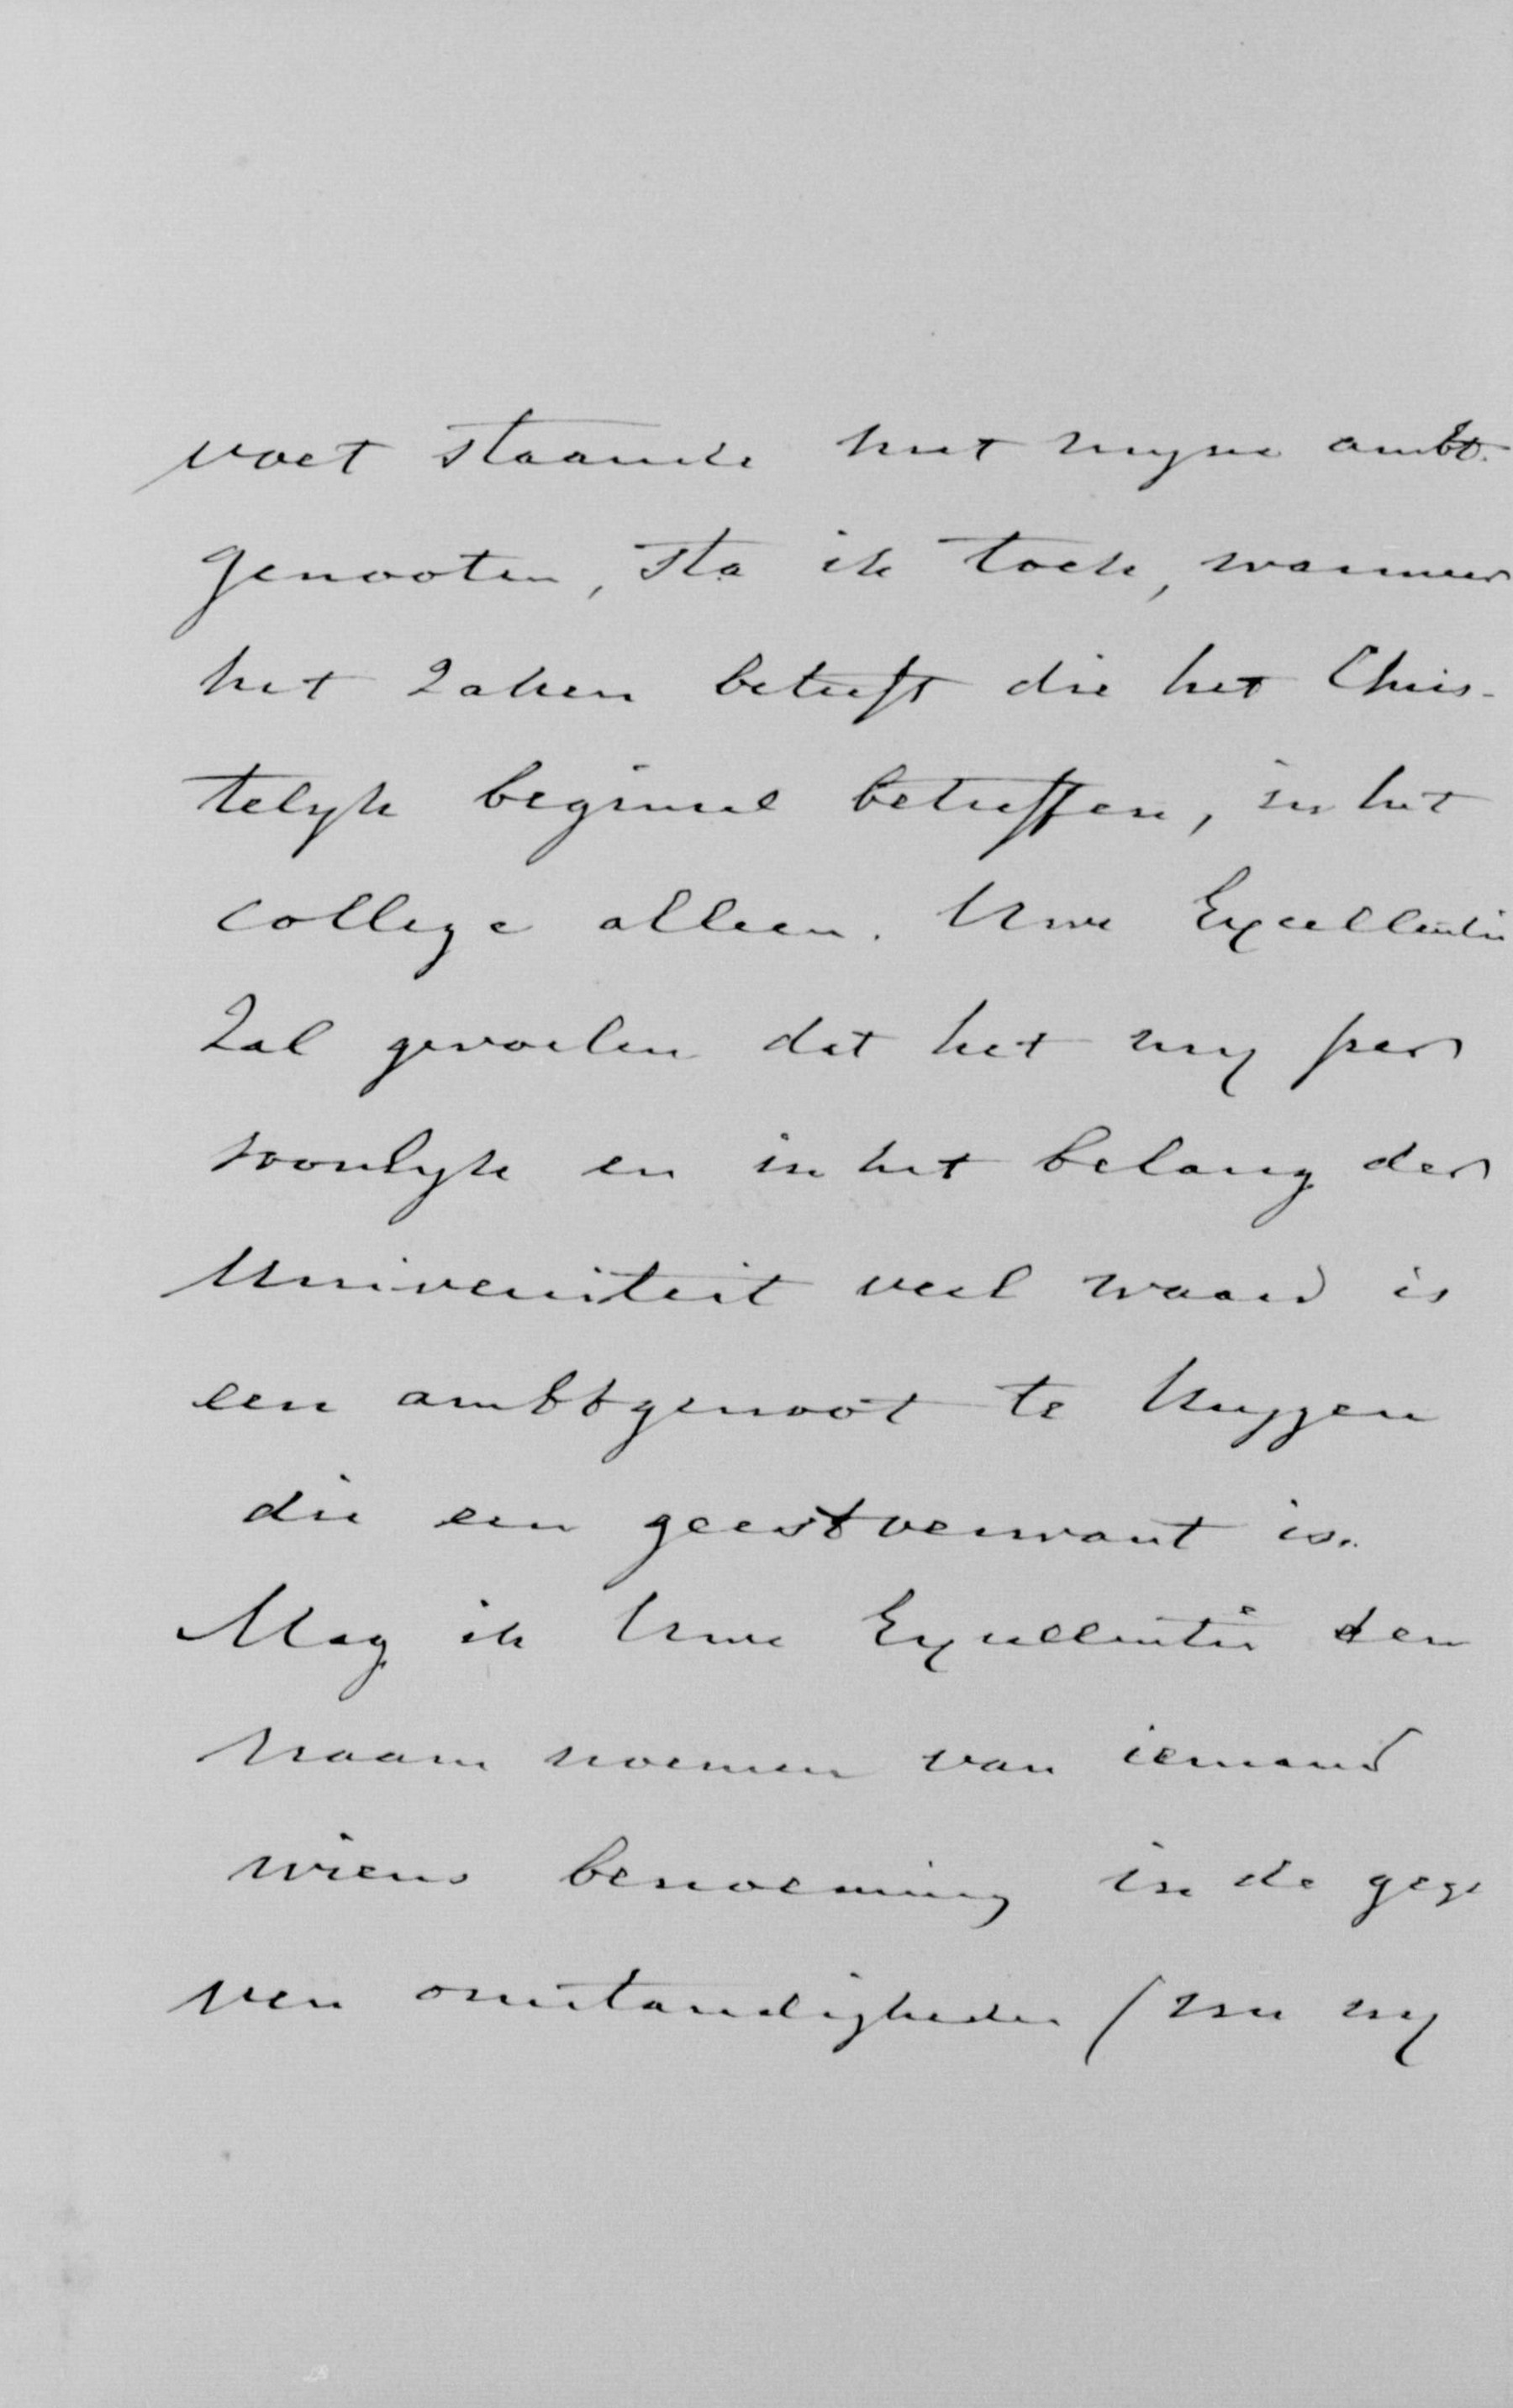 voet staande met myne ambt-
genooten, sta ik toch, wanneer
het zaken betreft die het Chris-
telyk beginsel betreffen, in het
college alleen. Uwe Excellentie
zal gevoelen dat het my per
soonlyk en in het belang der
Universiteit veel waard is
een ambtgenoot te krygen
die een geestverwant is.
Mag ik Uwe Excellentie den
naam noemen van iemand
wiens benoeming in de gege
ven omstandigheden (nu wy